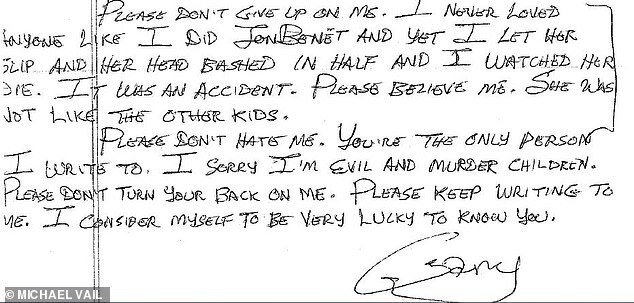 PLEASE DON'T GIVE UP ON ME. I NEVER LOVED
ANYONE LIKE I DID JONBENÉT AND YET I LET HER
SLIP AND HER HEAD BASHED IN HALF AND I WATCHED HER
DIE. IT WAS AN ACCIDENT. PLEASE BELIEVE ME. SHE WAS
NOT LIKE THE OTHER KIDS.
PLEASE DON'T HATE ME. YOU'RE THE ONLY PERSON
I WRITE TO. I SORRY I'M EVIL AND MURDER CHILDREN.
PLEASE DON'T TURN YOUR BACK ON ME. PLEASE KEEP WRITING TO
ME. I CONSIDER MYSELF TO BE VERY LUCKY TO KNOW YOU.
Gary
© MICHAEL VAIL